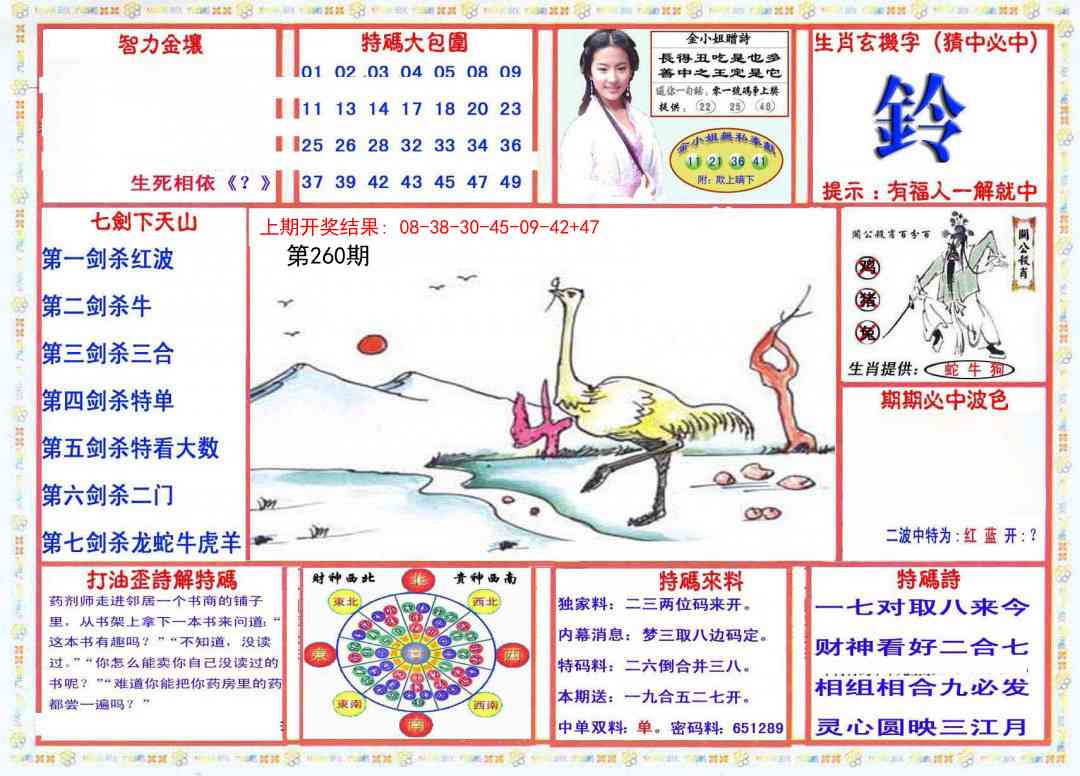 智力金壤
生死相依《？》
特碼大包圍
01 02 03 04 05 08 09
11 13 14 17 18 20 23
25 26 28 32 33 34 36
37 39 42 43 45 47 49
金小姐贈詩
長得丑吃是也多
善申之王定是它
送你一句話：零一號碼爭上獎
提供：22 25 48
金小姐無私奉獻
11 21 36 41
附：欺上瞒下
生肖玄機字（猜中必中）
鈴
提示：有福人一解就中
七劍下天山
第一剑杀红波
第二剑杀牛
第三剑杀三合
第四剑杀特单
第五剑杀特看大数
第六剑杀二门
第七剑杀龙蛇牛虎羊
上期开奖结果: 08-38-30-45-09-42+47
第260期
關公殺肖百分百
關公殺肖
鸡
猪
兔
生肖提供: 蛇 牛 狗
期期必中波色
二波中特为:红 蓝 开:?
打油歪詩解特碼
药剂师走进邻居一个书商的铺子
里，从书架上拿下一本书来问道：“
这本书有趣吗？”“不知道，没读
过。”“你怎么能卖你自己没读过的
书呢？”“难道你能把你药房里的药
都尝一遍吗？”
財神西北
貴神西南
北
東北
西北
東
西
東南
西南
南
特碼來料
独家料：二三两位码来开。
内幕消息：梦三取八边码定。
特码料：二六倒合并三八。
本期送：一九合五二七开。
中单双料：单。密码料：651289
特碼詩
一七对取八来今
财神看好二合七
相组相合九必发
灵心圆映三江月